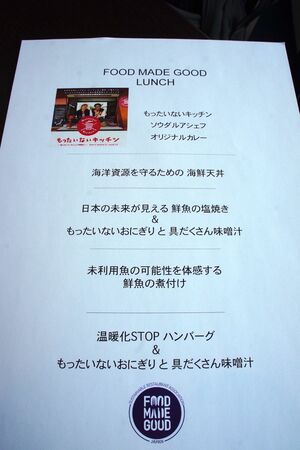 FOOD MADE GOOD
LUNCH
もったいないキッチン
もったいないキッチン
ソウダルアシェフ
オリジナルカレー
海洋資源を守るための 海鮮天丼
日本の未来が見える 鮮魚の塩焼き
&
もったいないおにぎり と 具だくさん味噌汁
未利用魚の可能性を体感する
鮮魚の煮付け
温暖化STOP ハンバーグ
&
もったいないおにぎり と 具だくさん味噌汁
FOOD
MADE
GOOD
JAPAN